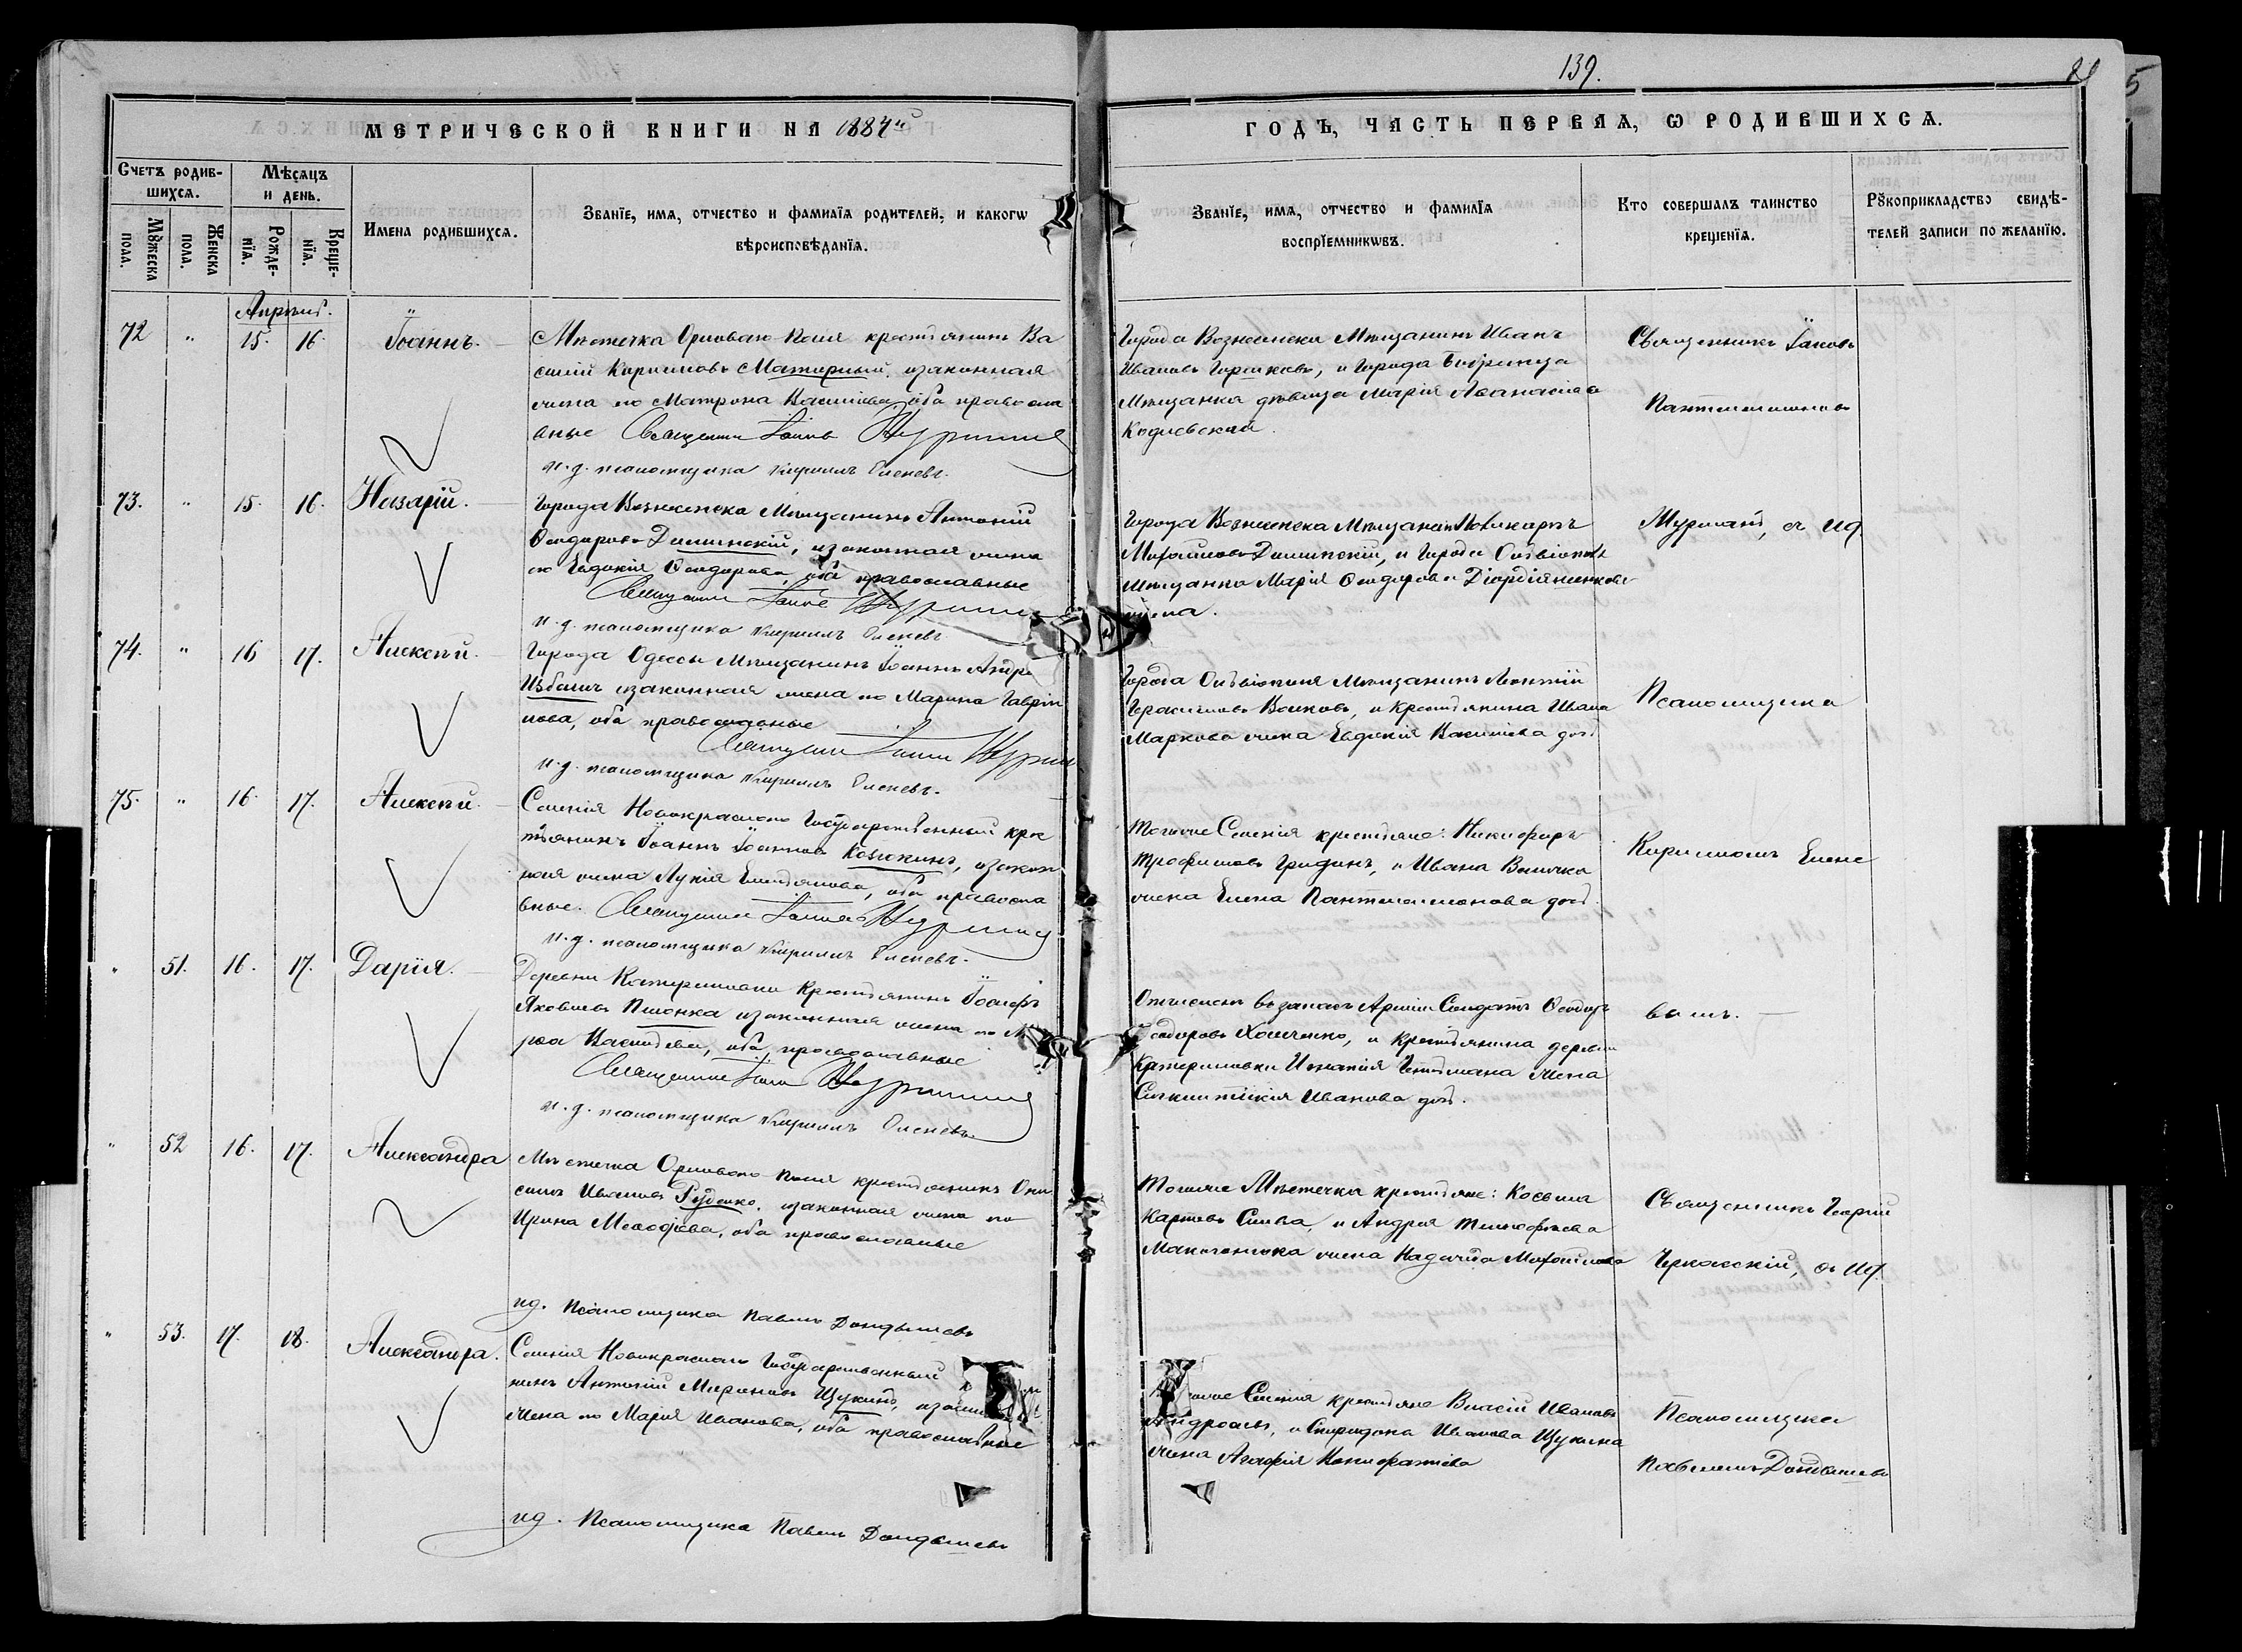 139.
5
МЕТРИЧЕСКОЙ КНИГИ НА 1884й
ГОДЪ, ЧАСТЬ ПЕРВАЯ, Ѡ РОДИВШИХСѦ.
Счетъ родив-
шихсѧ.
Мѣсѧцъ
и день.
Мꙋжеска
пола.
Женска
пола.
Рожде-
нїѧ.
Креще-
нїѧ.
Имена родившихсѧ.
Званїе, имѧ, отчество и фамилїѧ родителей, и какогѡ
вѣроисповѣданїѧ.
Званїе, имѧ, отчество и фамилїѧ
воспрїемникѡвъ.
Кто совершалъ таинство
крещенїѧ.
Рꙋкоприкладство свидѣ-
телей записи по желанїю.
Апрѣль.
72 " 15. 16. Іоаннъ.
Мѣстечка Ольшоваго Поля крестьянинъ Ва
силій Кириловъ Матерный, и законная
жена его Матрона Васильева, оба правосла
вные Священникъ Іаковъ
и. д. псаломщика Кириллъ Еленевъ.
Города Вознесенска Мѣщанинъ Иванъ
Ивановъ Горшковъ, и Города Бобринца
Мѣщанка дѣвица Марія Аѳанасіева
Кодиевская.
Священникъ Іаковъ
Пантелеимоновъ
73. " 15. 16. Назарій.
Города Вознесенска Мѣщанинъ Антоній
Ѳеодоровъ Дашинскій, и законная жена
его Евдокія Ѳеодорова, оба православные
Священникъ Іаковъ
и. д. псаломщика Кириллъ Еленевъ
Города Вознесенска Мѣщанинъ Поликарпъ
Михайловъ Дашинскій, и Города Овидіополя
Мѣщанка Марія Ѳеодорова
жена.
съ ид.
74. " 16 17. Алексѣй.
Города Одессы Мѣщанинъ Іоаннъ Андре
и законная жена его Марина Гаврiи
лова, оба православные
Священникъ Іаковъ
и. д. псаломщика Кириллъ Еленевъ.
Города Овидіополя Мѣщанинъ Леонтій
Герасимовъ Волковъ, и крестьянина Ивана
Маркова жена Евдокія Васильева дочь
Псаломщика
75. " 16. 17. Алексѣй.
Селенія Новокраснаго Государственный крес
тьянинъ Іоаннъ Іоанновъ Козюкинъ, и закон
ная жена Лукія Емельянова, оба правосла
вные. Священникъ Іаковъ
и. д. псаломщика Кириллъ Еленевъ.
Тогоже Селенія крестьяне: Никифоръ
Трофимовъ Гридинъ, и Ивана
жена Елена Пантелеимонова дочь.
Кирилломъ Елене
" 51. 16. 17. Дарія.
Деревни Катериновки Крестьянинъ Іосифъ
Яковлевъ Пшонка и законная жена его
Васильева, оба православные
Священникъ Іаковъ
и. д. псаломщика Кириллъ Еленевъ
въ запасъ Арміи Солдатъ Ѳеодоръ
Ѳеодоровъ, и крестьянина деревни
Катериновки Игнатія Гетьмана жена
Синклитикія Иванова дочь.
вымъ.
" 52 16. 17. Александра
Мѣстечка Ольшоваго Поля крестьянинъ Они
симъ Ивановъ Руденко, и законная жена его
Ирина Меѳодіева, оба православные
ид. Псаломщика Павелъ Дондышевъ
Тогоже Мѣстечка крестьяне: Косьма
Карповъ Слива, и Андрея Тимофѣева
жена Надежда Михайлова
Священникъ Георгій
Черкасскій, съ ид.
" 53. 17. 18. Александра.
Селенія Новокраснаго Государственный
нинъ Антоній Мироновъ Щукинъ, и законная
жена его Марія Иванова, оба православные
ид. Псаломщика Павелъ Дондышевъ
Тогоже Селенія крестьяне Власій Ивановъ
и Спиридона Иванова Щукина
жена Агафія
Псаломщика
Павломъ Дондышевымъ